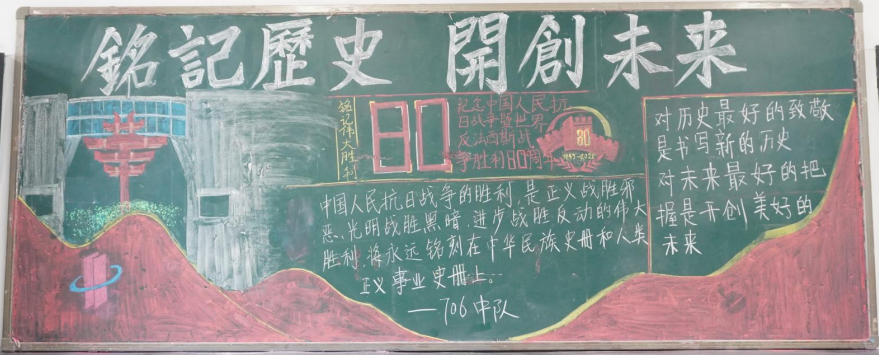 銘記歷史 開創未来
铭记伟大胜利
80
纪念中国人民抗
日战争暨世界
反法西斯战
争胜利80周年
80
1945-2025
中国人民抗日战争的胜利，是正义战胜邪
恶、光明战胜黑暗、进步战胜反动的伟大
胜利，将永远铭刻在中华民族史册和人类
正义事业史册上。
—706中队
对历史最好的致敬
是书写新的历史
对未来最好的把
握是开创美好的
未来